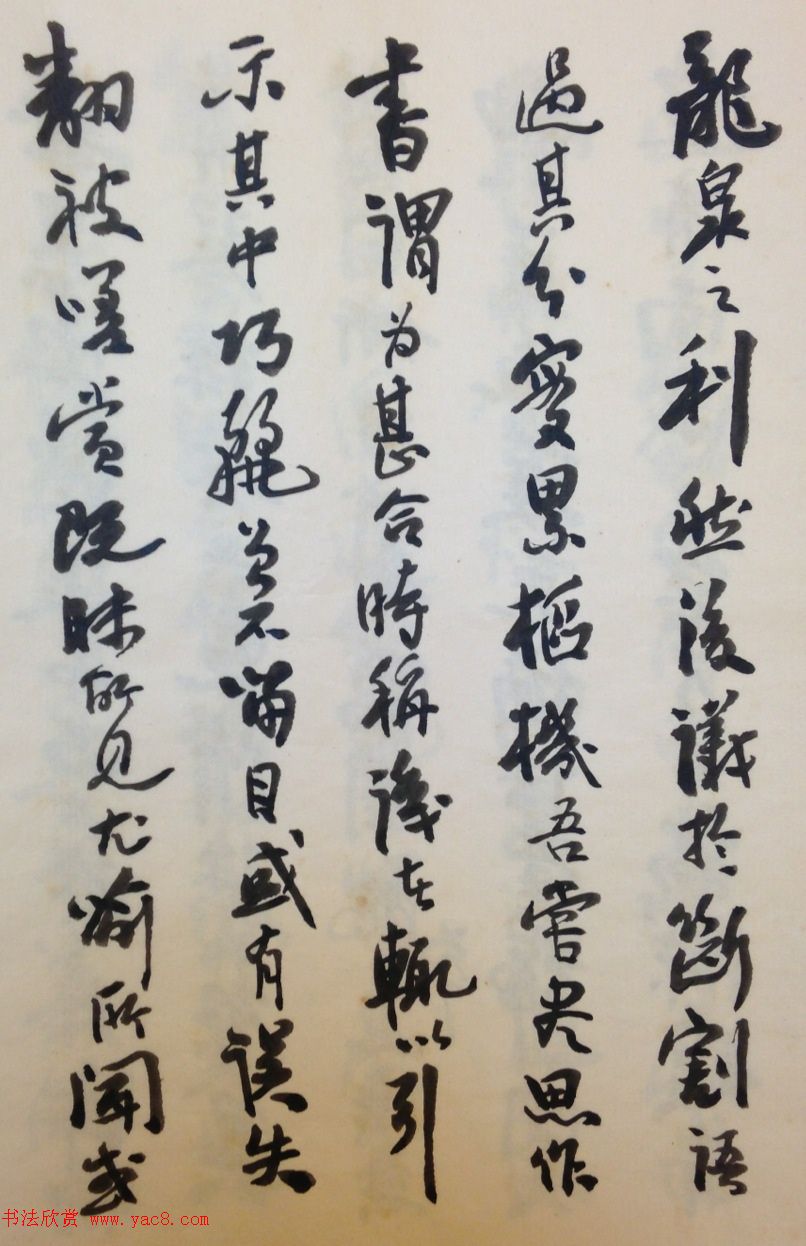 龍泉之利然後議於斷割語
過其分實累樞機吾嘗盡思作
書謂為甚合時稱識者輒以引
示其中巧麗曾不留目或有誤失
翻被嗟賞既昧所見尤喻所聞或
书法欣赏 www.yac8.com